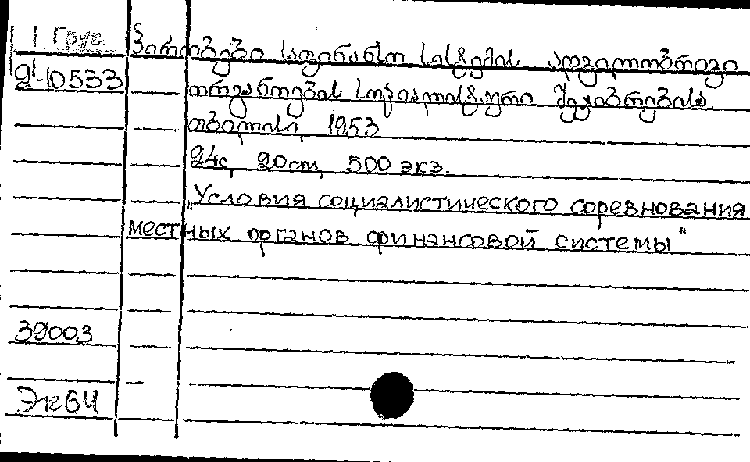 1 Груз
პირობები საფინანსო სისტემის ადგილობრივი
24-10533
ორგანოების სოციალისტური შეჯიბრებისა
თბილისი, 1953
24с, 20см, 500 экз.
„Условия социалистического соревнования
местных органов финансовой системы"
39003